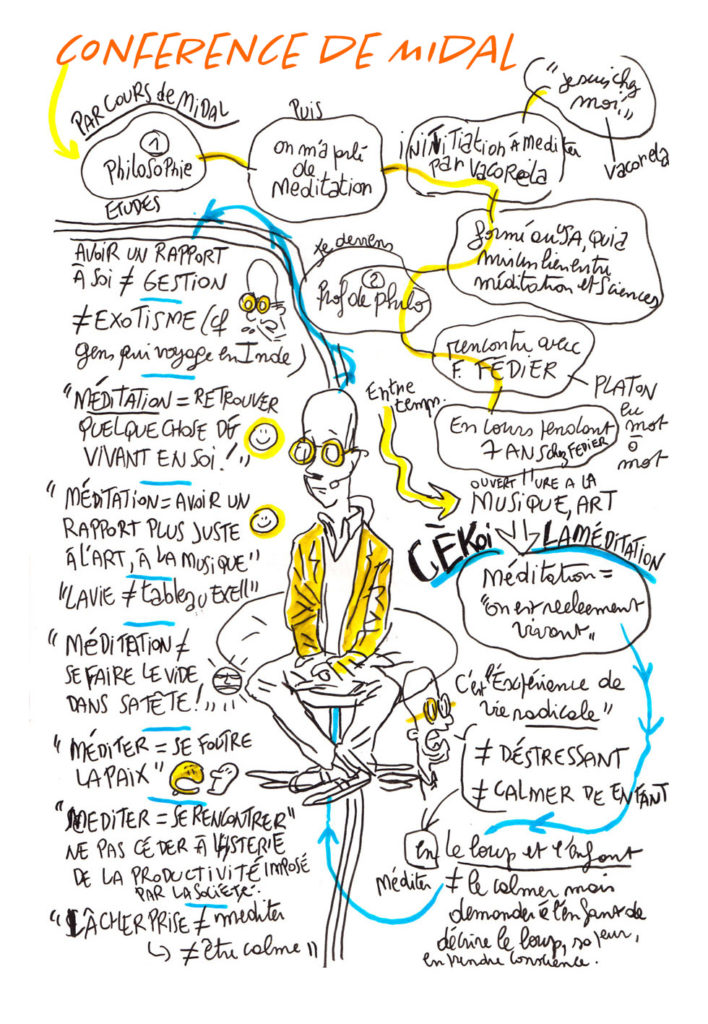 CONFERENCE DE MIDAL
PARCOURS de MIDAL
1
PHiLOSOPHiE
ETUDES
PUiS
on m'a parlé
de
MEDITATION
iNiNiTiATiON À MEDiTER
PAR VACORELA
"Je suis chez
moi"
VACORELA
formé au USA, qui a
mis en lien entre
méditation et Sciences
Je deviens
2
Prof de philo
rencontre avec
F. FÉDIER
PLATON
lu
mot
à
mot
En cours pendant
7 ANS chez FEDIER
Entre
temps.
OUVERTTURE A LA
MUSIQUE, ART
CÈKoi
LA MÉDITATION
Méditation =
"on est réellement
vivant"
C'est "l'Expérience de
vie radicale"
≠ DÉSTRESSANT
≠ CALMER DE ENFANT
Le loup et l'enfant
Méditer
≠ le calmer mais
demander à l'enfant de
décrire le loup, sa peur,
en prendre conscience.
AVOiR UN RAPPORT
À SOi ≠ GESTION
≠ EXOTiSME (cf
gens qui voyage en Inde)
"MÉDiTATiON = RETROUVER
QUELQUE CHOSE DE
ViVANT EN SOi!"
"MÉDiTATiON = AVOiR UN
RAPPORT PLUS JUSTE
À L'ART, À LA MUSiQUE"
"LA ViE ≠ tableau EXELL"
"MÉDiTATiON ≠
SE FAiRE LE ViDE
DANS SA TÊTE!"
"MÉDiTER = SE FOUTRE
LA PAiX"
"MEDiTER = SE RENCONTRER"
NE PAS CÉDER À L'HYSTERiE
DE LA PRODUCTiViTÉ iMPOSÉ
PAR LA SOCiETÉ.
"LÂCHER PRiSE ≠ mediter
≠ être calme"